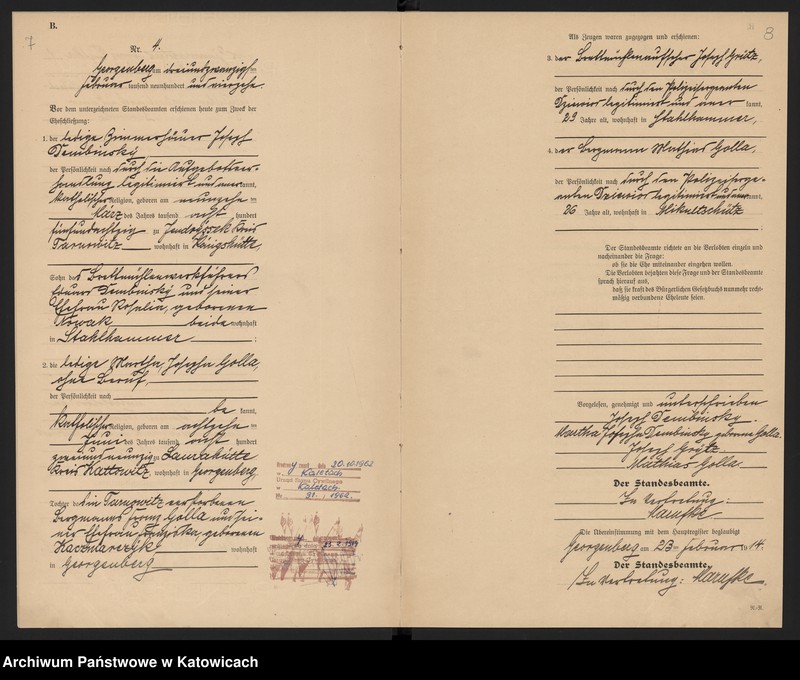 B.
7
Nr. 4.
Georgenberg am dreiundzwanzigsten
Februar tausend neunhundert und vierzehn.
Vor dem unterzeichneten Standesbeamten erschienen heute zum Zweck der
Eheschließung:
1. der ledige Zimmerhäuer Joseph
Dembinsky
der Persönlichkeit nach durch die Aufgebotsver-
handlung legitimiert und anerkannt,
katholischer Religion, geboren am neunzehnten
März des Jahres tausend acht hundert
fünfundachtzig zu Kreis
Tarnowitz, wohnhaft in Königshütte,
Sohn des Brettmühlenwerkführers
Dembinsky und seiner
Ehefrau Rosalia, geborenen
Nowak beide wohnhaft
in Stahlhammer ;
2. die ledige Martha, Josepha Golla,
ohne Beruf,
der Persönlichkeit nach
bekannt,
katholischer Religion, geboren am achtzehnten
Juni des Jahres tausend acht hundert
zweiundneunzig zu Laurahütte
Kreis Kattowitz, wohnhaft in Georgenberg,
Tochter des in Tarnowitz verstorbenen
Bergmanns Franz Golla und sei-
ner Ehefrau Franziska, geborenen
wohnhaft
in Georgenberg
8
Als Zeugen waren zugezogen und erschienen:
3. der Brettmühlenaufseher Joseph
der Persönlichkeit nach durch den Polizeisergeanten
Dziwior legitimiert und anerkannt,
29 Jahre alt, wohnhaft in Stahlhammer,
4. der Bergmann Mathias Golla,
der Persönlichkeit nach durch den Polizeiserge-
anten Dziwior legitimiert und anerkannt,
36 Jahre alt, wohnhaft in Mikultschütz
;
Der Standesbeamte richtete an die Verlobten einzeln und
nacheinander die Frage:
ob sie die Ehe miteinander eingehen wollen.
Die Verlobten bejahten diese Frage und der Standesbeamte
sprach hierauf aus,
daß sie kraft des Bürgerlichen Gesetzbuchs nunmehr recht-
mäßig verbundene Eheleute seien.
Vorgelesen, genehmigt und unterschrieben
Joseph Dembinsky.
Martha Josepha Dembinsky geborene Golla.
Joseph
Mathias Golla.
Der Standesbeamte.
In Vertretung:
Die Übereinstimmung mit dem Hauptregister beglaubigt
Georgenberg am 23ten Februar 1914.
Der Standesbeamte.
In Vertretung:
Urząd Stanu Cywilnego
w Kaletach
Archiwum Państwowe w Katowicach